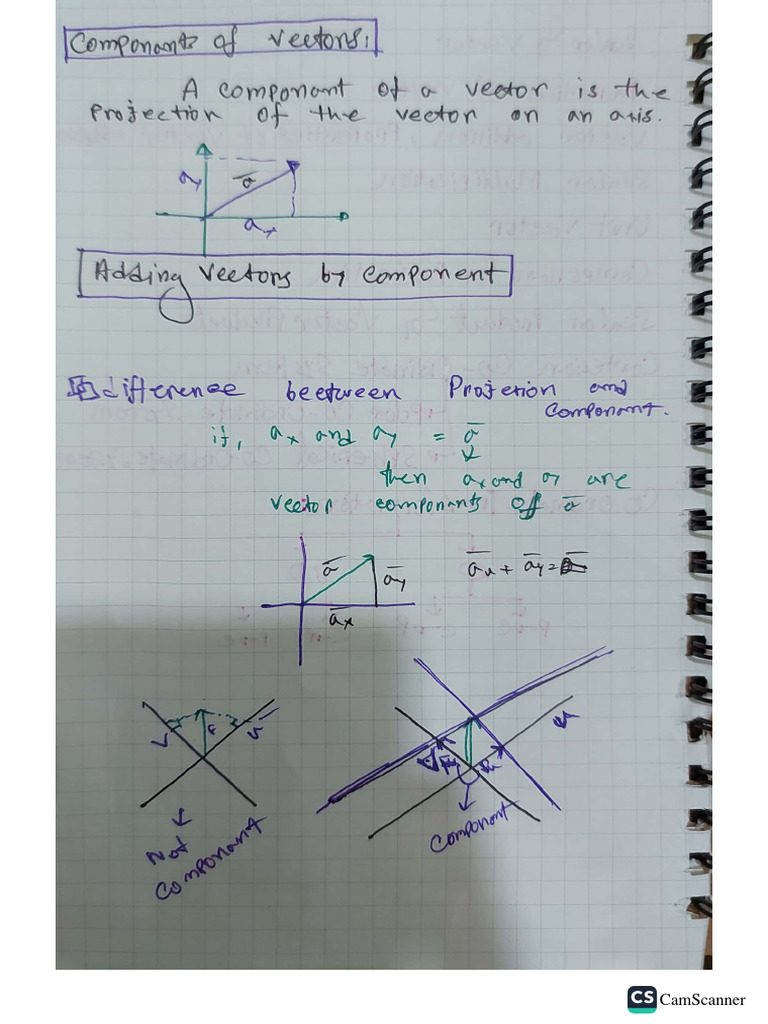 Componants of vectors:
A componant of a vector is the
Projection of the vector on an axis.
ay
a̅
ax
Adding Vectors by Component
difference beetween Projetion and
Componant.
if, ax and ay = a̅
then ax and ay are
vector componants off a̅
a̅
a̅y
a̅x
a̅x + a̅y =
Not
Componant
Component
CS CamScanner